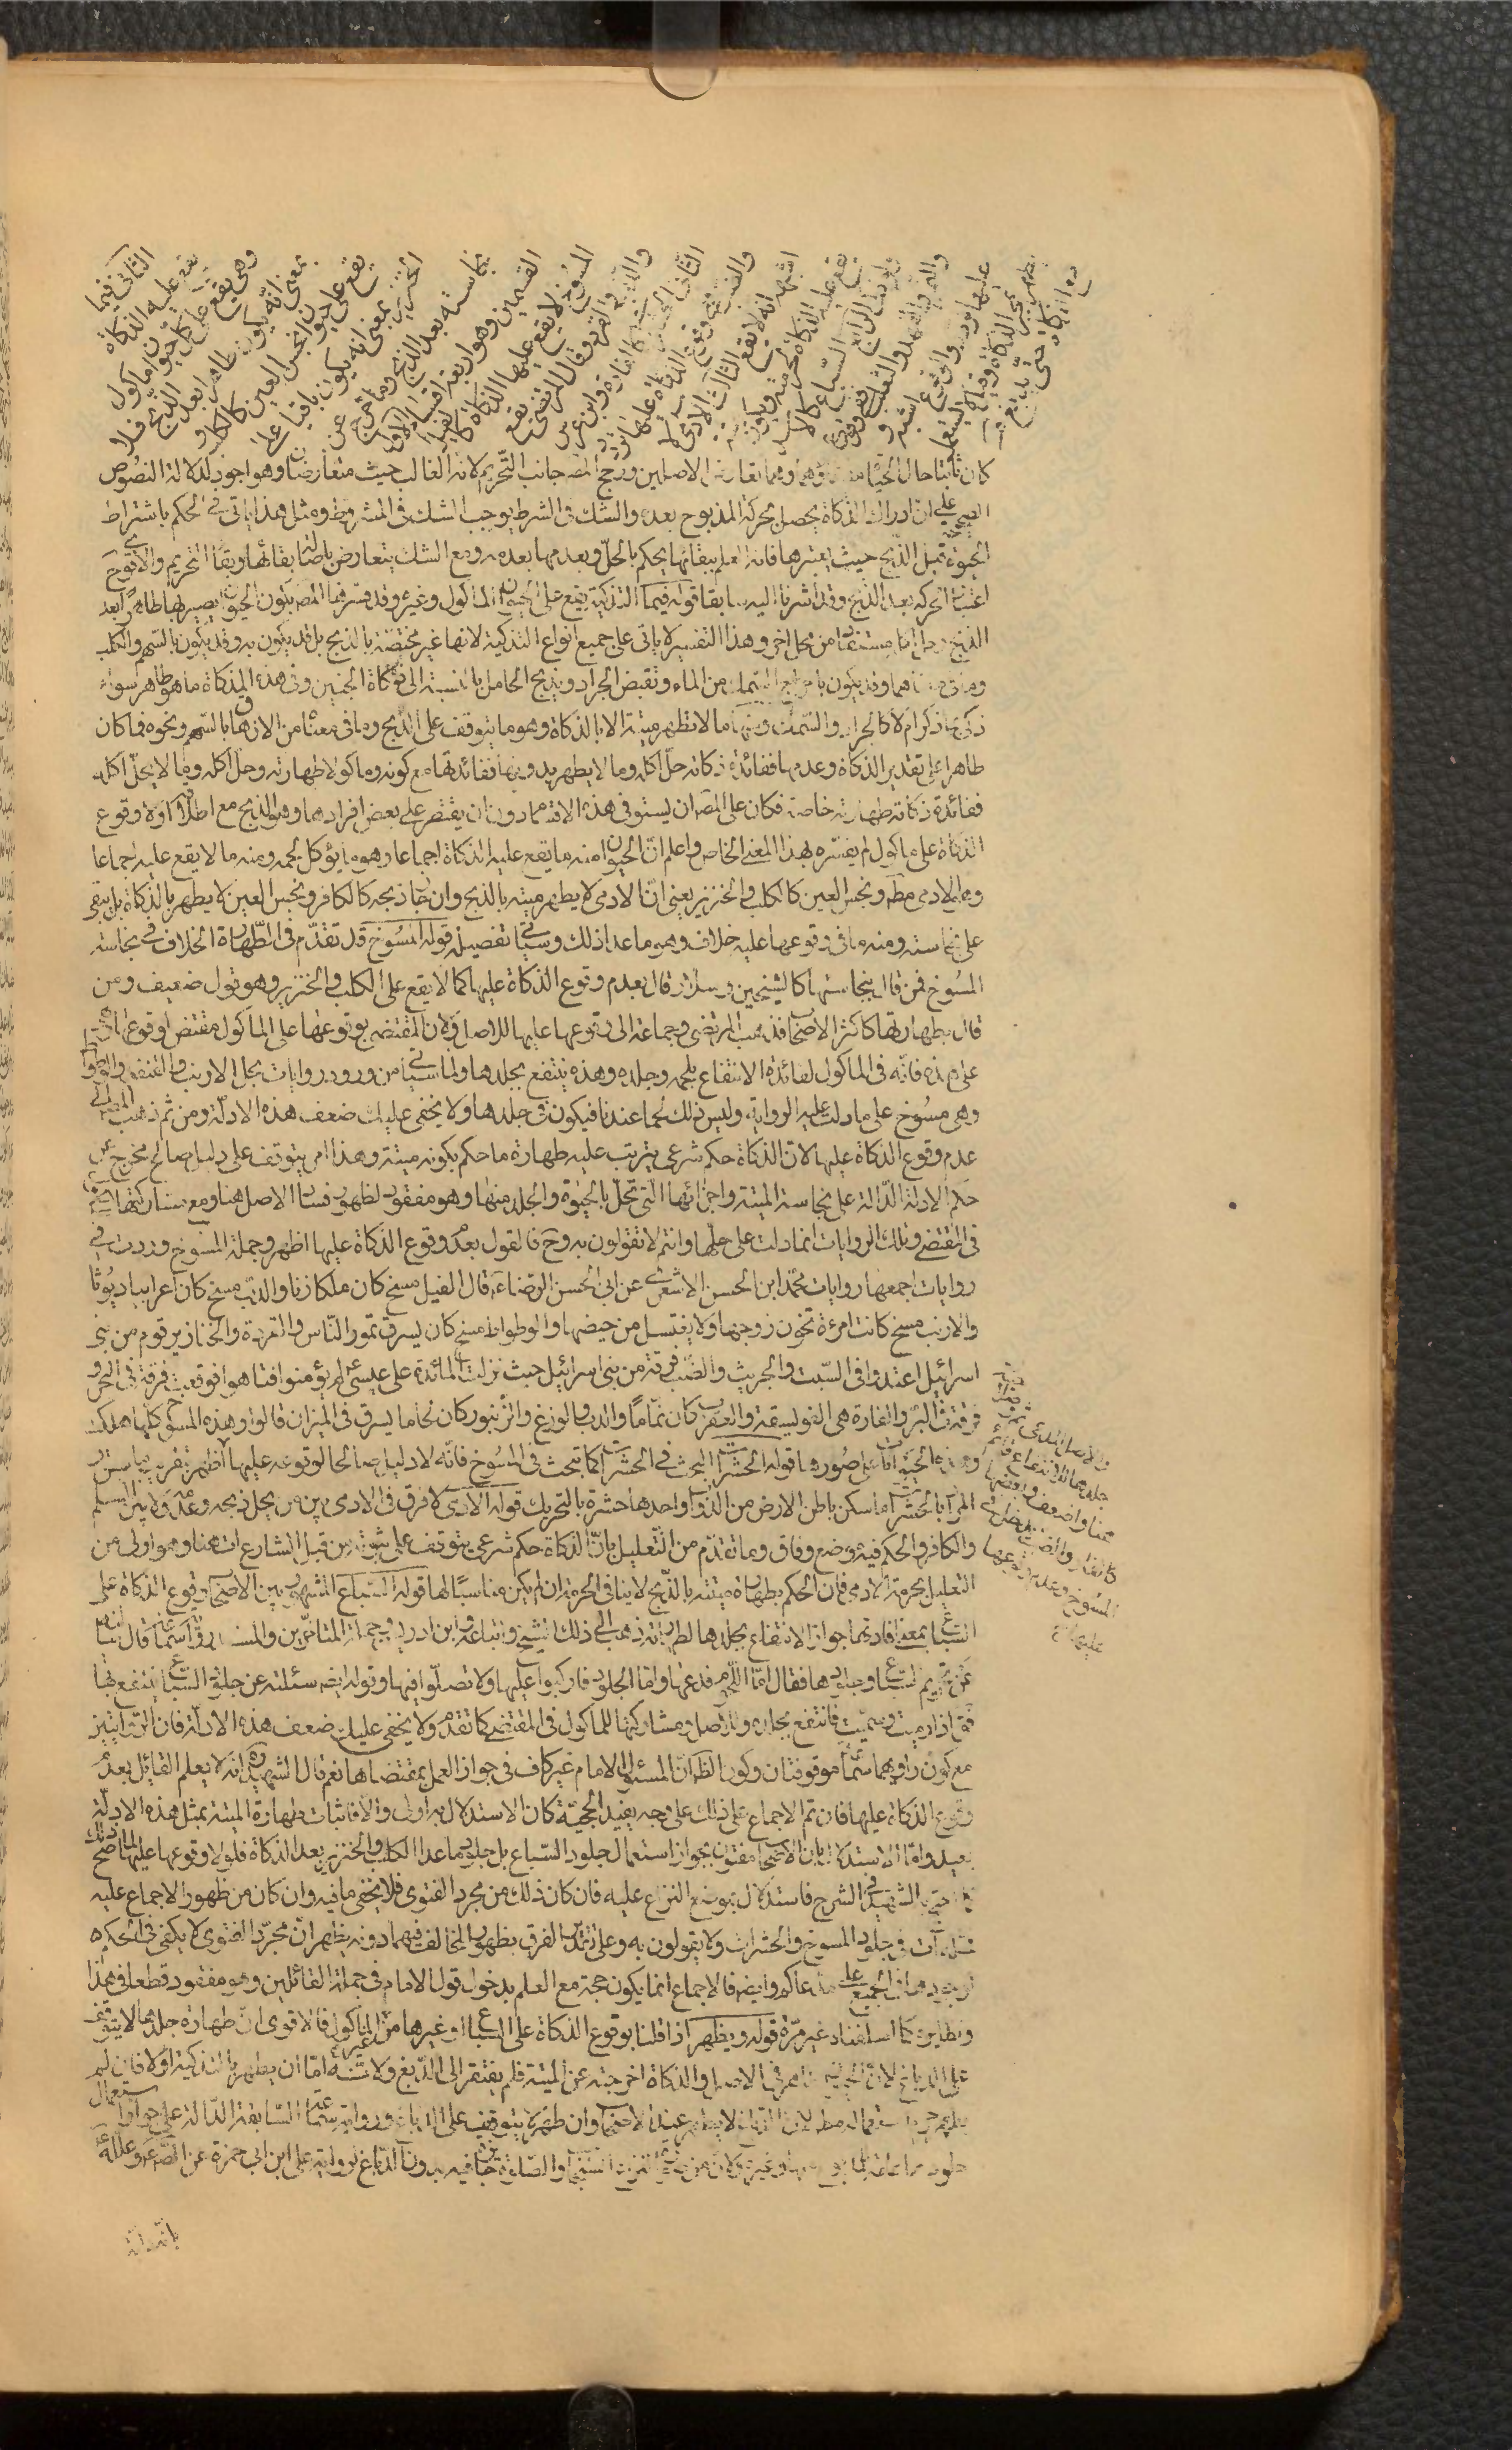 الثانى فيما
تقع عليه الذكاة
وهى تقع على كل حيوان ماكول
بمعنى انه يكون طاهرا بعد الذبح ولا
تقع على حيوان نجس العين كالكلب و
الخنزير بمعنى انه يكون باقيا على
نجاسته بعد الذبح وما خرج عن
القسمين فهو اربعة اقسام الاول
المسوخ لا يقع عليها الذكاة كالفيل
والدب والقرد وقال المرتضى تقع
الثانى الحشرات كالفارة وابن عرس
والضب ففى وقوع الذكاة عليها تردد
اشبهه انه لا يقع الثالث الادمى لا
تقع عليه الذكاة لحرمته ويكون
الرابع السباع كالاسد
والنمر والفهد والثعلب وفى وقوع
الذكاة عليها تردد والوقوع اشبه و
تطهر بمجرد الذكاة وقيل لا تستعمل
مع الذكاة حتى تدبغ
كان ثابتا حال الحيوة تعارض الاصلين ورجح المصـ جانب التحريم لانه الغالب حيث متعارضان وهو اجود لدلالة النصوص
الصحيحة على ان ادراك الذكاة يحصل بحركة المذبوح بعده والشك فى الشرط يوجب الشك فى المشروط ومثل هذا ياتى فى الحكم باشتراط
الحيوة قبل الذبح حيث يعتبرها فانه العلم ببقائها يحكم بالحل وبعدمها بعدمه ومع الشك يتعارض اصالتا بقائها وبقاء التحريم والاقوى ح
اعتبار الحركة بعد الذبح وقد اشرنا اليه سابقا قوله فيما الذكية يقع على الحيوان الماكول وغيره وقد فسرها المصـ بكون الحيوان يصير بها طاهرا بعد
الذبح من محل اخر وهذا التفسير لا ياتى على جميع انواع التذكية لانها غير مختصة بالذبح بل قد يكون به وقد يكون بالسهم والكلب
وما فى معناهما وقد يكون باخراج السمك من الماء وقبض الجراد وبذبح الحامل بالنسبة الى ذكاة الجنين وفى هذه المذكاة ما هو طاهر سواء
ذكى بما ذكر ام لا كالجراد والسمك ومنها ما لا تطهر ميتة الا بالذكاة وهو ما يتوقف على الذبح وما فى معناه من الازهاق بالسهم ونحوه فما كان
طاهرا على تقدير الذكاة وعدمها ففائدة ذكاته حل اكله وما لا يطهر بدونها ففائدتها مع كونه ماكولا طهارته وحل اكله وما لا يحل اكله
ففائدة ذكاته طهارته خاصة فكان على المصـ ان يستوفى هذه الاقسام دون ان يقتصر على بعض افرادهما وهو الذبح مع اطلاقه اولا وقوع
الذكاة على ماكول لم يفسره بهذا المعنى الخاص واعلم ان الحيوان منه ما يقع عليه الذكاة اجماعا وهو ما يؤكل لحمه ومنه ما لا يقع عليه اجماعا
وهو الادمى مطـ ونجس العين كالكلب والخنزير يعنى ان الادمى لا يطهر ميته بالذبح وان جاز ذبحه كالكافر ونجس العين لا يطهر بالذكاة بل يبقى
على نجاسته ومنه ما فى وقوعها عليه خلاف وهو ما عدا ذلك وسياتى تفصيله قوله المسوخ قد تقدم فى الطهارة الخلاف فى نجاسة
المسوخ فمن قال بنجاستها كالشيخين وسلار قال بعدم وقوع الذكاة عليها كما لا يقع على الكلب والخنزير وهو قول ضعيف ومن
قال بطهارتها كاكثر الاصحاب فذهب المرتضى وجماعة الى وقوعها عليها للاصل ولان المقتضى لوقوعها على الماكول مقتض لوقوعها
على هذه فانه فى الماكول لفائدة الانتفاع بلحمه وجلده وهذه ينتفع بجلدها ولما سياتى من ورود روايات بحل الارنب والقنفذ والوطواط
وهى مسوخ على ما دلت عليه الرواية وليس ذلك لحما عندنا فيكون فى جلدها ولا يخفى عليك ضعف هذه الادلة ومن ثم ذهب المصـ الى
عدم وقوع الذكاة عليها لان الذكاة حكم شرعى يترتب عليه طهارة ما حكم بكونه ميتة وهذا امر يتوقف على دليل صالح مخرج عن
حكم الادلة الدالة على نجاسة الميتة واجزائها التى تحل بالحيوة والجلد منها وهو مفقود لظهور فساد الاصل هنا ومنع مشاركتها
فى المقتضى وتلك الروايات انما دلت على حلها وانتم لا تقولون به وح فالقول بعدم وقوع الذكاة عليها اظهر وجملة المسوخ وردت فى
روايات اجمعها روايات محمد ابن الحسن الاشعرى عن ابى الحسن الرضا عـ قال الفيل مسخ كان ملكا زناء والذئب مسخ كان اعرابيا ديوثا
والارنب مسخ كانت امرءة تخون زوجها ولا يغتسل من حيضها والوطواط مسخ كان يسرق تمور الناس والقردة والخنازير قوم من بنى
اسرائيل اعتدوا فى السبت والجريث والضب فرقة من بنى اسرائيل حيث نزلت المائدة على عيسى عـ لم يؤمنوا فتاهوا فوقعت فرقة فى البحر و
فرقة فى البر والفارة هى الفويسقة والعقرب كان نماما والدب والوزغ والزنبور كان لحاما يسرق فى الميزان قالوا وهذه المسوخ كلها هلكت
وهذه الحيوانات على صورها قوله الحشرات البحث فى الحشرات كما تبحث فى المسوخ فانه لا دليل صالحا لوقوعه عليها
المراد بالحشرات ما سكن باطن الارض من الدواب واحدها حشرة بالتحريك قوله الادمى لا فرق فى الادمى بين من يحل ذبحه وعدمه ولا بين المسلم
والكافر والحكم فيه موضع وفاق وما تقدم من التعليل بان الذكاة حكم شرعى يتوقف على ثبوته من قبل الشارع ات هنا وهو اولى من
التعليل بحرمة الادمى فان الحكم بطهارة ميتته بالذبح لا ينافى الحرمة ان لم يكن مناسبا لها قوله السباع المشهور بين الاصحاب وقوع الذكاة على
السباع بمعنى افادتها جواز الانتفاع بجلدها لطهارته ذهب الى ذلك الشيخ واتباعه وابن ادريس وجملة المتاخرين والمستند رواية سماعة قال سالته
عن تحريم السباع وجلودها فقال اما اللحوم فدعها واما الجلود فاركبوا عليها ولا تصلوا فيها وقوله ايضـ سئلته عن جلود السباع ينتفع بها
فقـ اذا رميت وسميت فانتفع بجلده وللاصل ومشاركتها للماكول فى المقتضى كما تقدم ولا يخفى عليك ضعف هذه الادلة فان الروايتين
مع كون راويهما سماعة موقوفتان وكون الظاهر ان المسئول الامام غير كاف فى جواز العمل بمقتضاها نعم قال الشهيد ره انه لا يعلم القائل بعدم
وقوع الذكاة عليها فان تم الاجماع على ذلك على وجه يفيد الحجية كان الاستدلال به اولى والا فاثبات طهارة الميتة بمثل هذه الادلة
بعيد واما الاستدلال بان الاصحاب مفتون بجواز استعمال جلود السباع بل جلود ما عدا الكلب والخنزير بعد الذكاة فلولا وقوعها عليها لما صح ذلك
كما احتج به الشهيد فى الشرح فاستدلال بموضع النزاع عليه فان كان ذلك من مجرد الفتوى فلا يخفى ما فيه وان كان من ظهور الاجماع عليه
فمثله ات فى جلود المسوخ والحشرات ولا يقولون به وعلى تقدير الفرق بظهور المخالف فيهما دونه يظهر ان مجرد الفتوى لا يكفى فى الحكم
لوجودها فى الجميع على مدعاكم وايضـ فالاجماع انما يكون حجة مع العلم بدخول قول الامام فى جملة القائلين وهو مفقود قطعا فى هذا
ونظايره كما اسلفناه غير مرة قوله ويطهر اذا قلنا بوقوع الذكاة على السباع او غيرها من غير الماكول فالاقوى ان طهارة جلدها لا يتوقف
على الدباغ لان الجلد طاهر فى الاصل والذكاة اخرجته عن الميتة فلم يفتقر الى الدبغ ولانه اما ان يطهر بالتذكية او لا فان لم
يطهر حرم استعماله مطـ لان الدباغ لا يطهر عند الاصحاب وان طهر لا يتوقف على الدباغ ورواية سماعة السابقة الدالة على جواز استعمال
جلود والصلوة فيه بدون الدباغ لرواية على ابن ابى حمزة عن الصـ عـ وعلله
بانه دابة
والاصل الذى
جلدها للانتفاع
هنا واضعف
كالفار والضب
المسوخ وعدم وقوعها
عليها